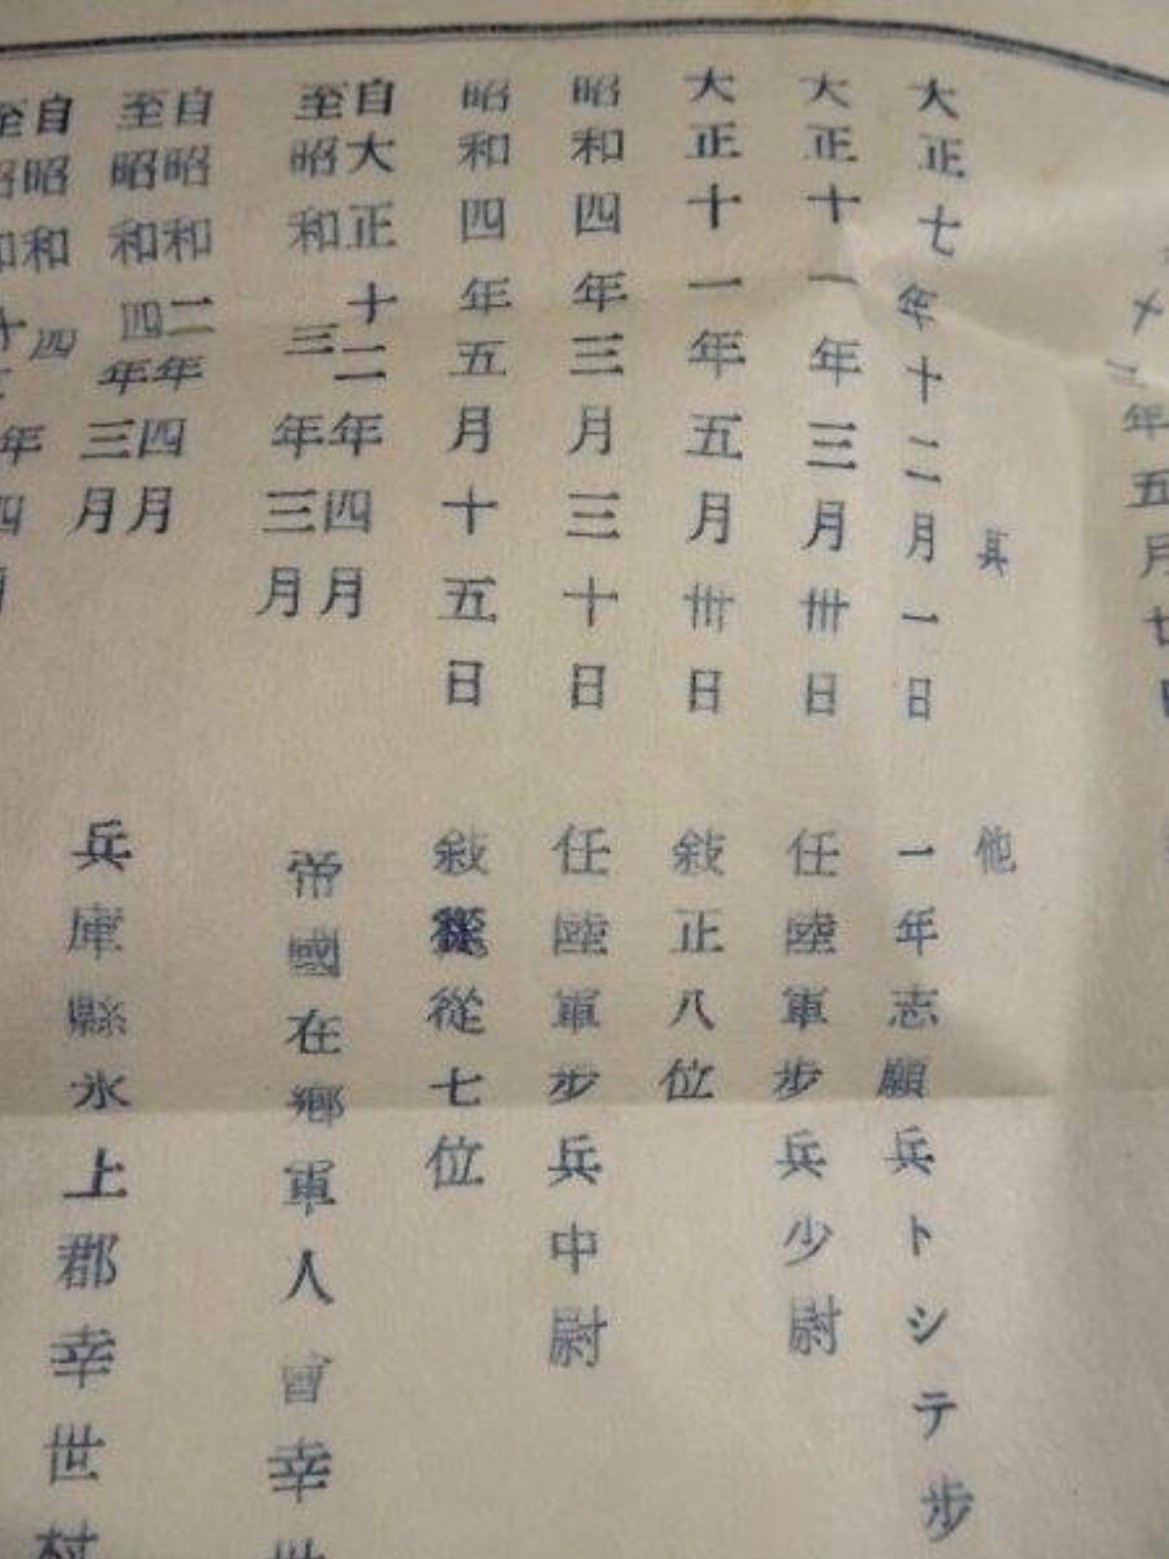 年五月
其他
大正七年十二月一日 一年志願兵トシテ歩
大正十一年三月卅日 任陸軍歩兵少尉
大正十一年五月卅日 敍正八位
昭和四年三月三十日 任陸軍歩兵中尉
昭和四年五月十五日 敍從七位
自大正十二年四月
至昭和三年三月
帝國在鄕軍人會幸世
自昭和二年四月
至昭和四年三月
兵庫縣氷上郡幸世村
自昭和四
至昭和十年四月